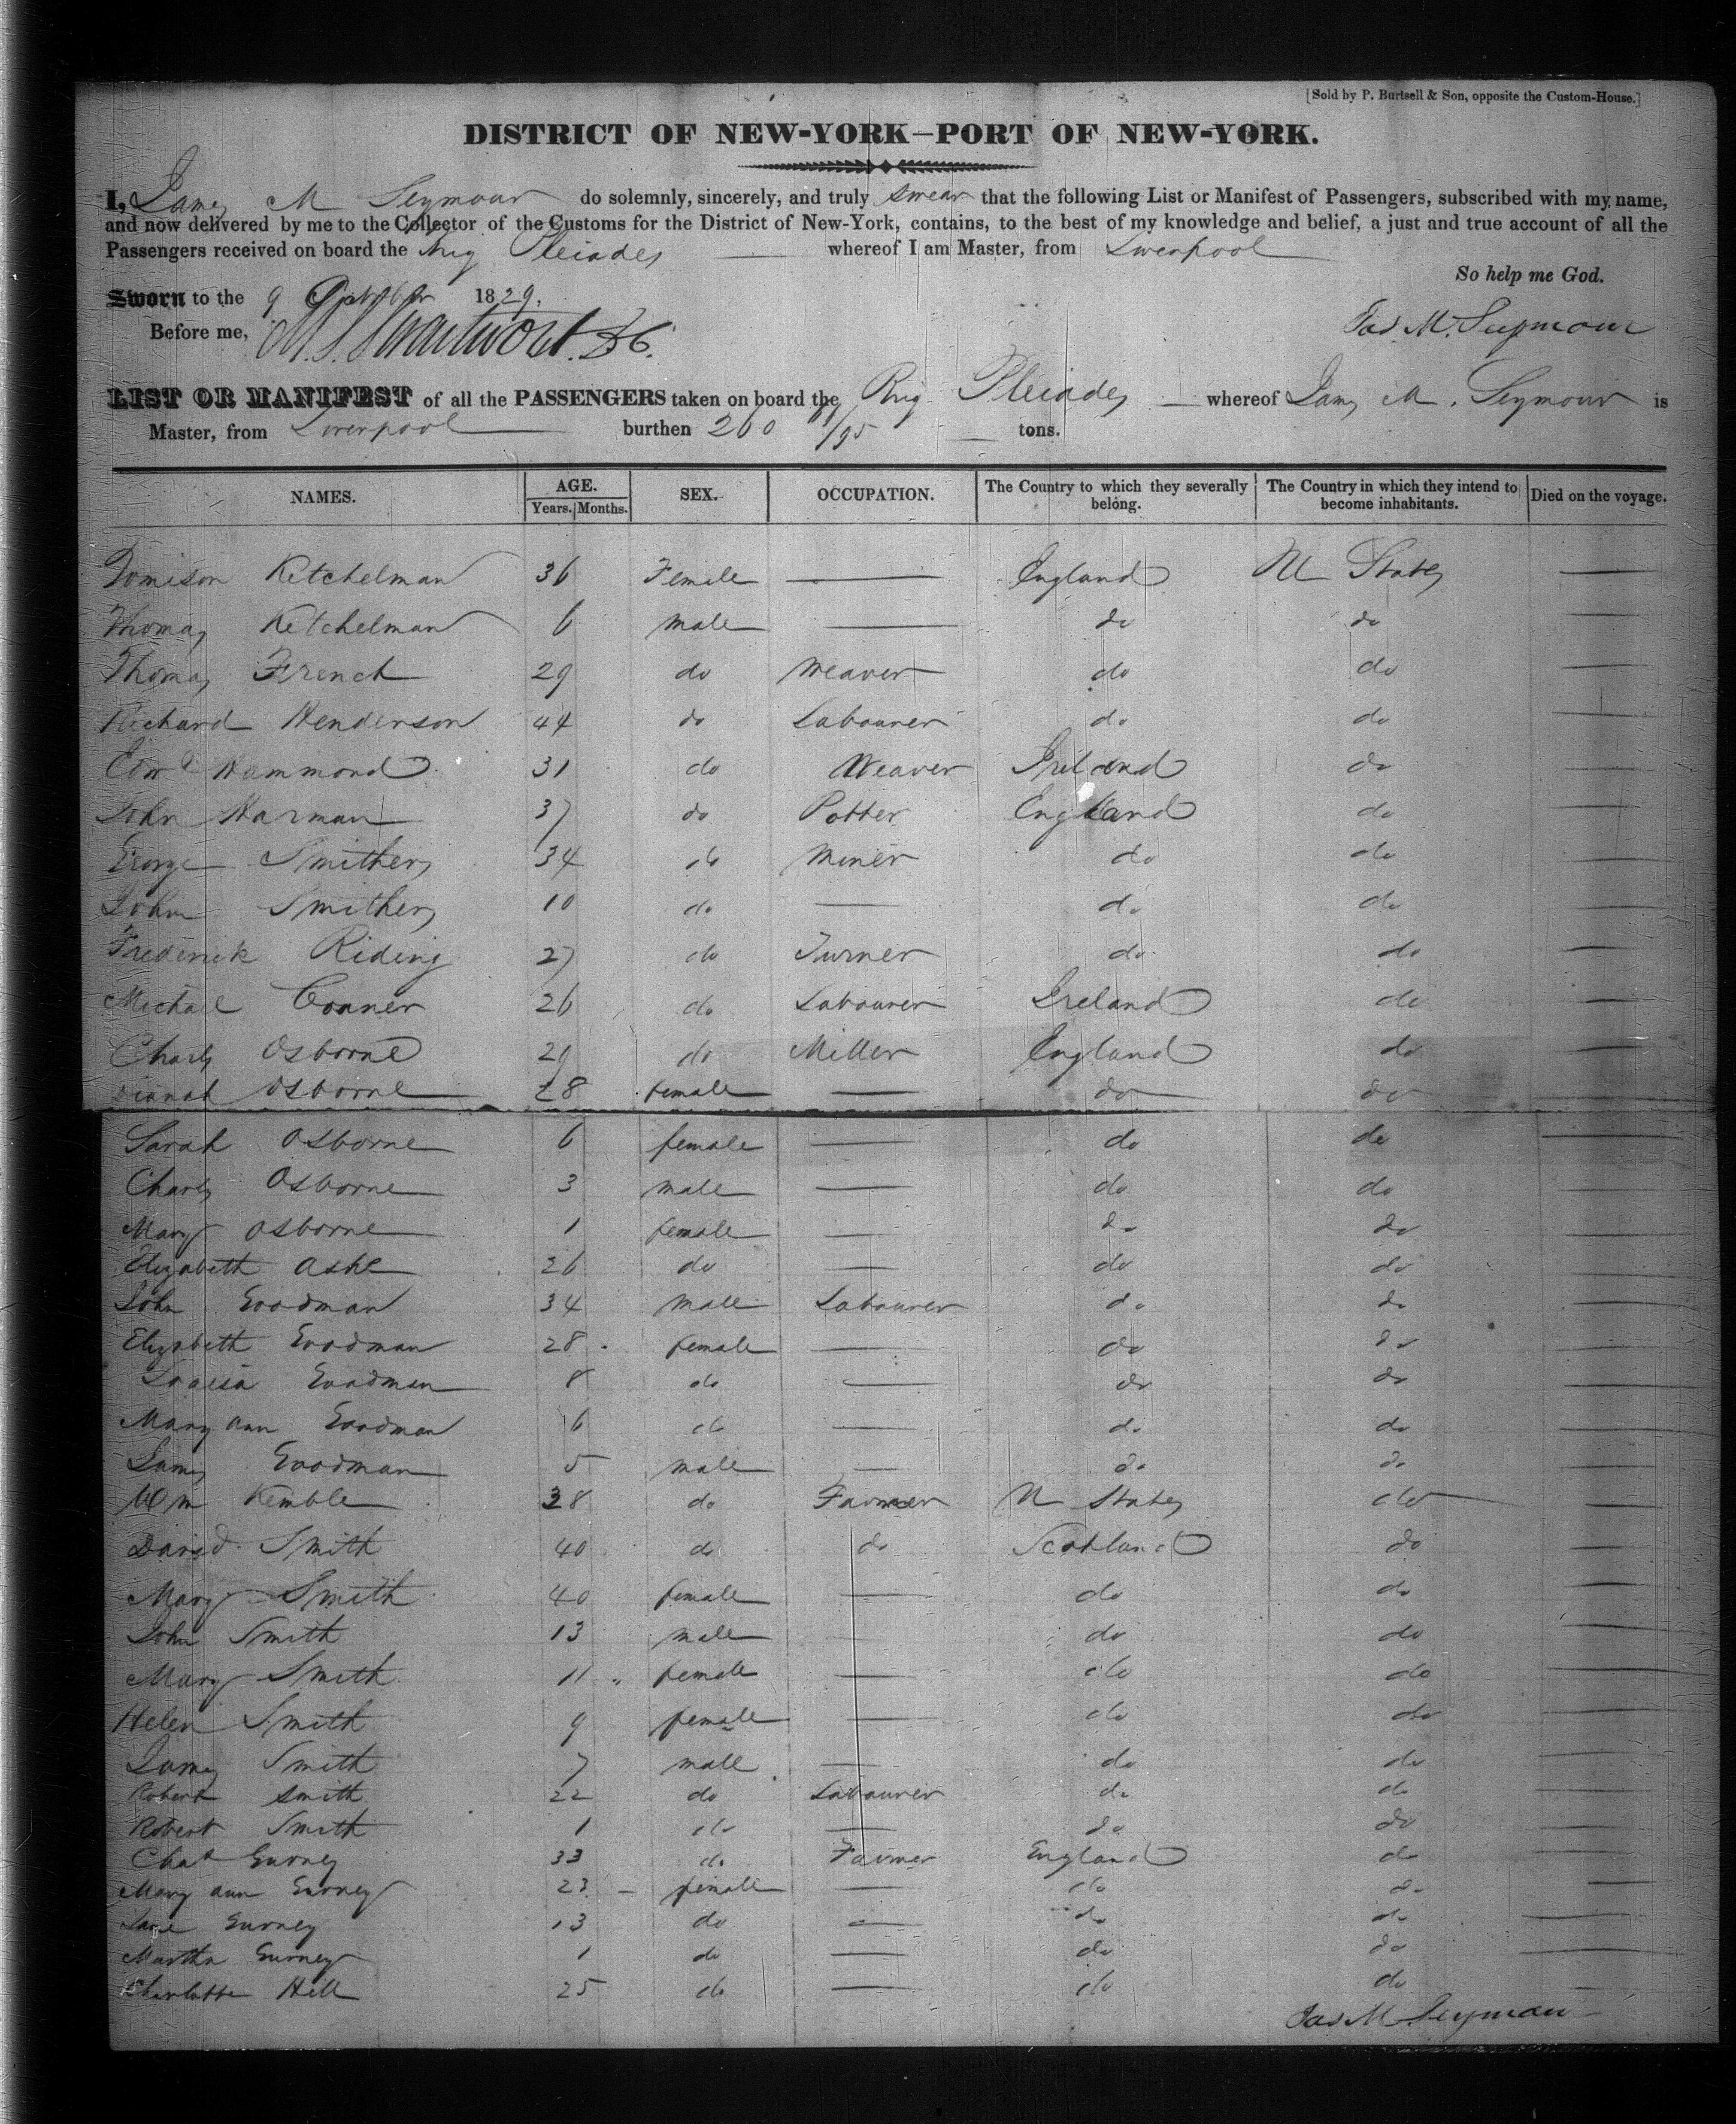 [Sold by P. Burtsell & Son, opposite the Custom-House.]
DISTRICT OF NEW-YORK—PORT OF NEW-YORK.
I, James M Seymour do solemnly, sincerely, and truly swear that the following List or Manifest of Passengers, subscribed with my name,
and now delivered by me to the Collector of the Customs for the District of New-York, contains, to the best of my knowledge and belief, a just and true account of all the
Passengers received on board the Brig Pleiades whereof I am Master, from Liverpool
So help me God.
Sworn to the 9 October 1829.
Jas. M. Seymour
Before me,
LIST OR MANIFEST of all the PASSENGERS taken on board the Brig Pleiades whereof James M. Seymour is
Master, from Liverpool burthen 260 /95 tons.
NAMES. AGE. Years. Months. SEX. OCCUPATION. The Country to which they severally belong. The Country in which they intend to become inhabitants. Died on the voyage.
Ketchelman 36 Female — England U States —
Thomas Ketchelman 6 male — do do —
Thomas French 29 do Weaver do do —
Richard Henderson 44 do Labourer do do —
Edwd Hammond 31 do Weaver Ireland do —
John Harman 37 do Potter England do —
George Smithers 34 do Miner do do —
John Smithers 10 do — do do —
Frederick Riding 27 do Turner do do —
Michael Conner 26 do Labourer Ireland do —
Charles Osborne 29 do Miller England do —
Dianah Osborne 28 female — do do
Sarah Osborne 6 female — do do —
Charles Osborne 3 male — do do —
Mary Osborne 1 female — do do —
Elizabeth Ashe 26 do — do do —
John Goodman 34 male Labourer do do —
Elizabeth Goodman 28 female — do do —
Louisa Goodman 8 do — do do —
Mary ann Goodman 6 do — do do —
James Goodman 5 male — do do —
Wm Kemble 38 do Farmer U States do —
David Smith 40 do do Scotland do —
Mary Smith 40 female — do do —
John Smith 13 male — do do —
Mary Smith 11 female — do do —
Helen Smith 9 female — do do —
James Smith 7 male — do do —
Robert Smith 22 do Labourer do do —
Robert Smith 1 do — do do —
Chas Gurney 33 do Farmer England do —
Mary ann Gurney 23 female — do do —
Jane Gurney 13 do — do do —
Martha Gurney 1 do — do do —
Charlotte Hill 25 do — do do —
Jas M. Seymour